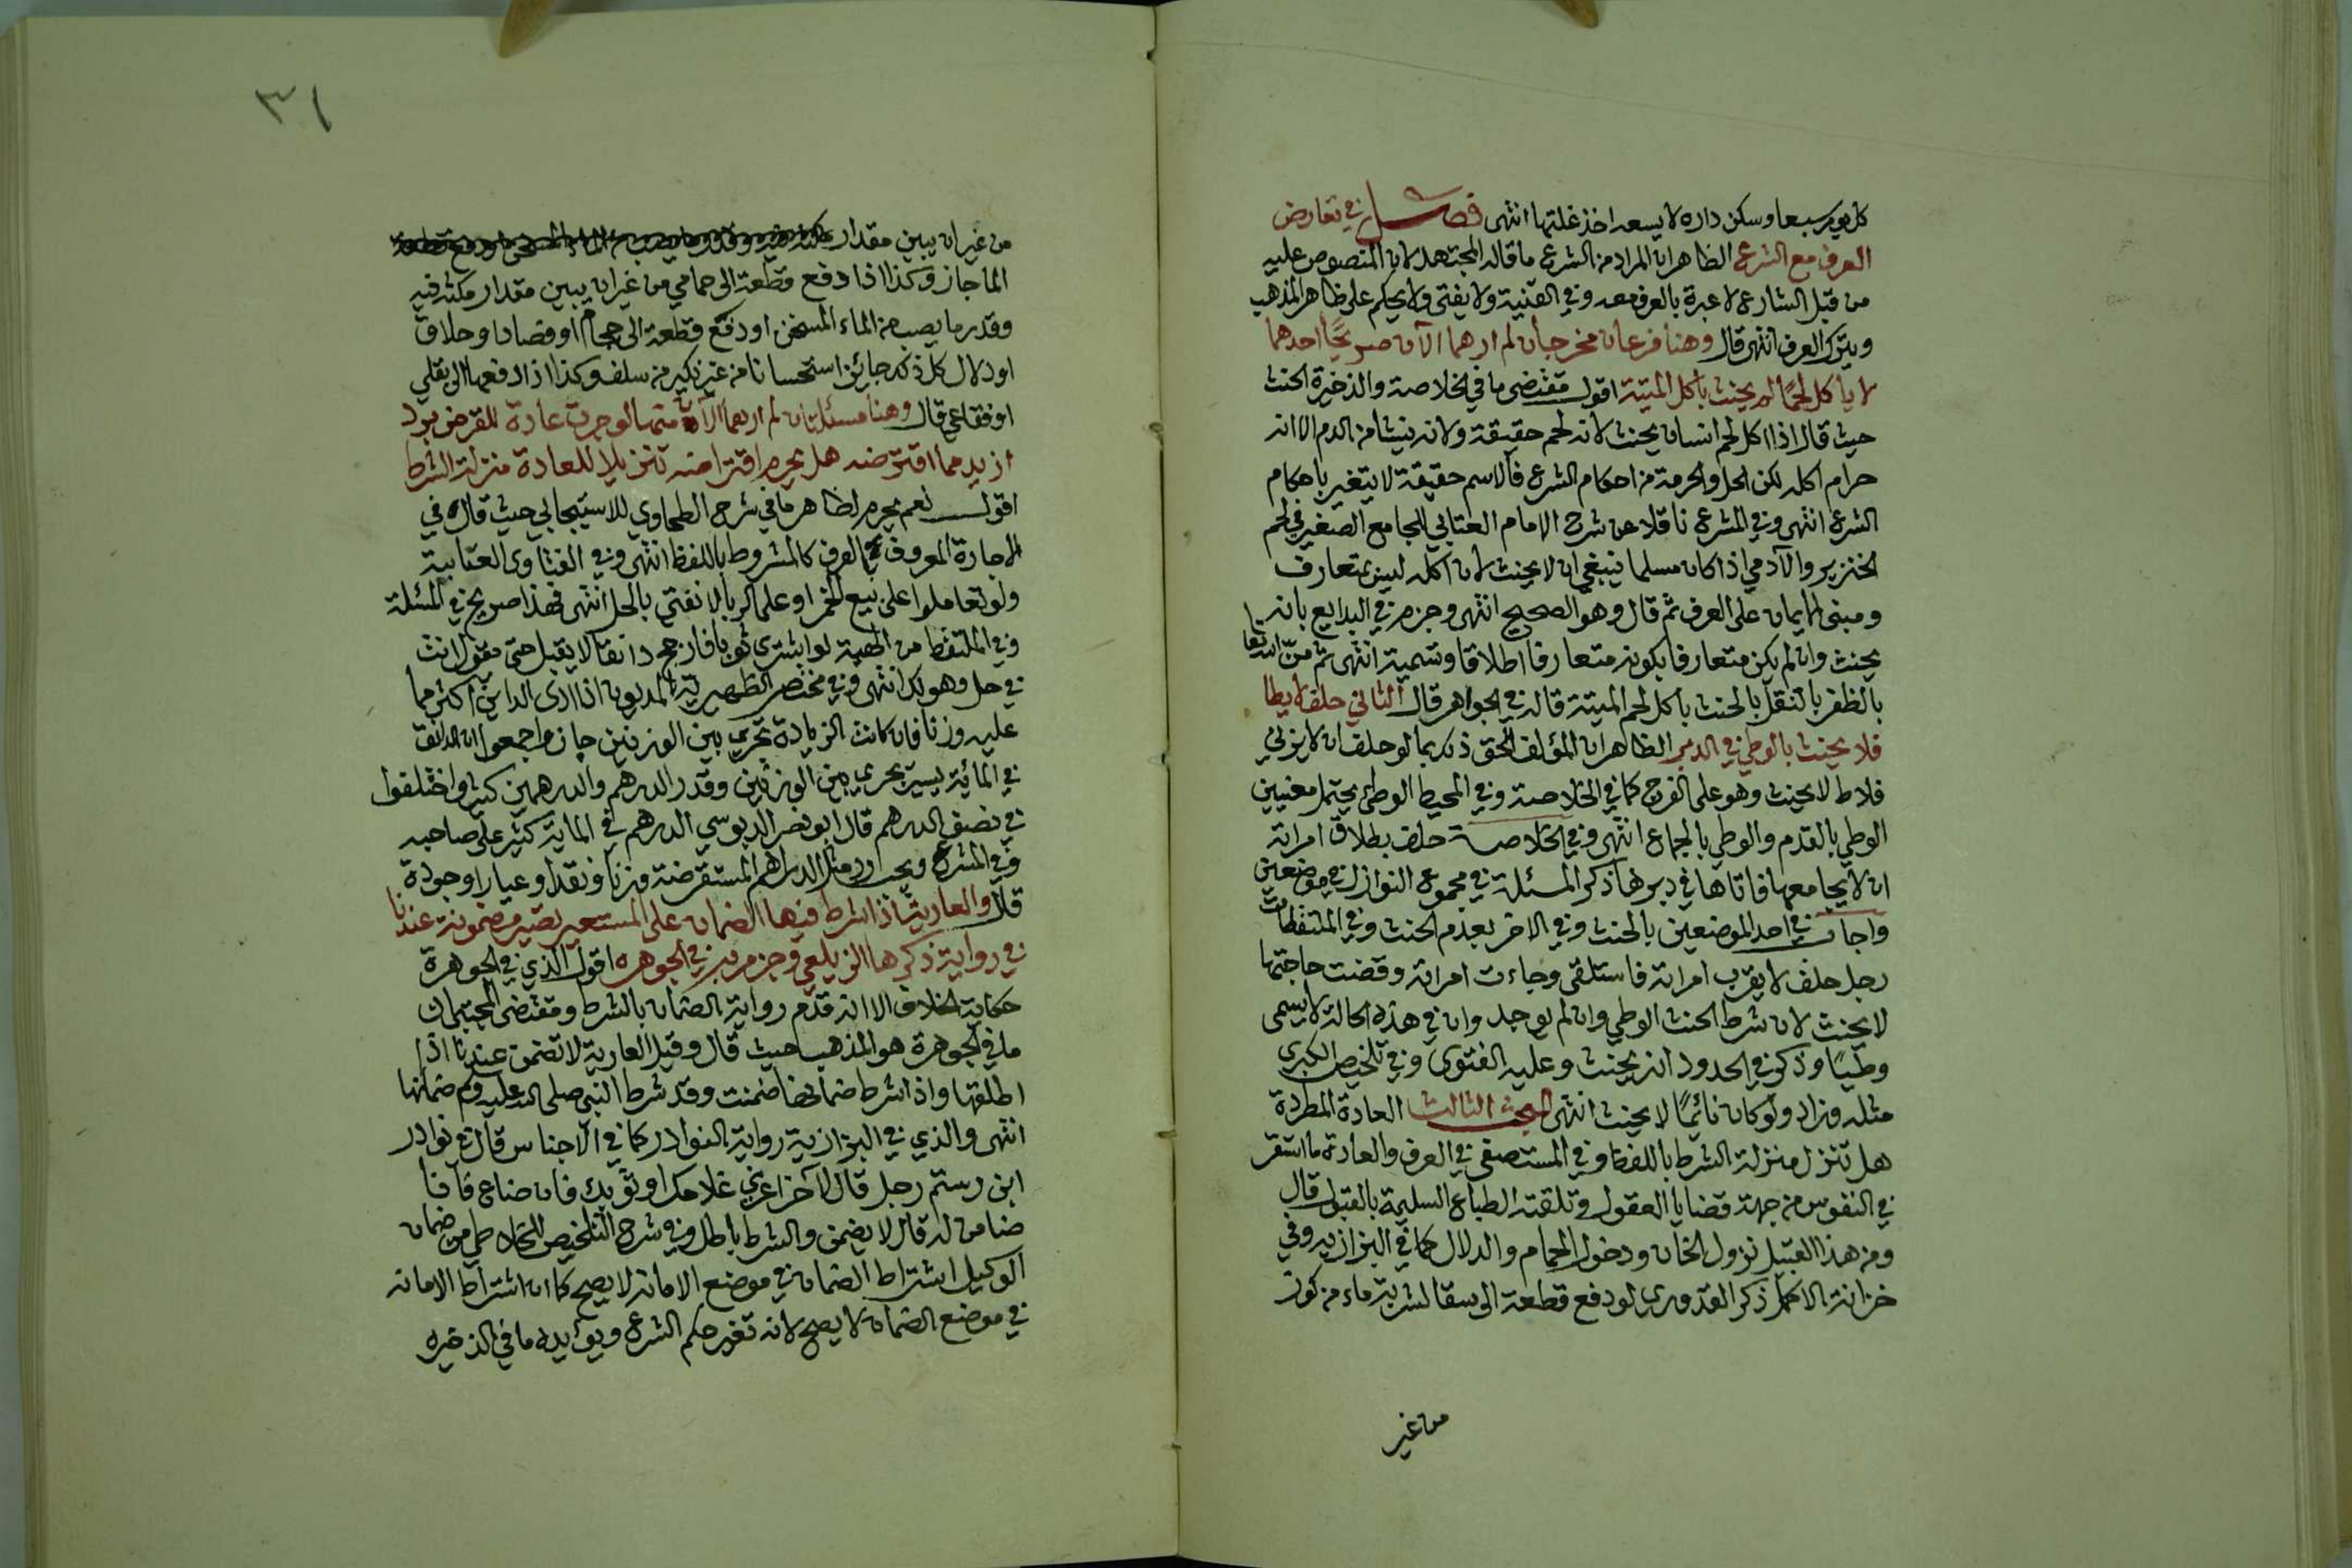 كل يوم سبعا وسكن داره لا يسعه اخذ غلتها انتهى فصل في تعارض
العرف مع الشرع الظاهر ان المراد من الشرع ما قاله المجتهد لان المنصوص عليه
من قبل الشارع لا عبرة بالعرف معه وفي القنية ولا يفتى ولا يحكم على ظاهر المذهب
ويترك العرف انتهى قال وهنا فرعان مخرجان لم ارهما الآن صريحًا احدهما
لا يأكل لحمًا لم يحنث باكل الميتة اقول مقتضى ما في الخلاصة والذخيرة الحنث
حيث قال اذا اكل لحم انسان يحنث لانه لحم حقيقة ولانه ينشا من الدم الا انه
حرام اكله لكن الحل والحرمة من احكام الشرع فالاسم حقيقة لا يتغير باحكام
الشرع انتهى وفي المشرع ناقلا عن شرح الامام العتابي للجامع الصغير في لحم
الخنزير والآدمي اذا كان مسلما ينبغي ان لا يحنث لان اكله ليس بمتعارف
ومبنى الايمان على العرف ثم قال وهو الصحيح انتهى وجزم في البدايع بانه لا
يحنث وان لم يكن متعارفا بكونه متعارفا اطلاقا وتسمية انتهى ثم منّ الله تعا
بالظفر بالنقل بالحنث باكل لحم الميتة قاله في الجواهر قال الثاني حلف لا يطا
فلا يحنث بالوطي في الدبر الظاهر ان المؤلف الحق ذلك بما لو حلف ان لا يزني
فلاط لا يحنث وهو على الفرج كما في الخلاصة وفي المحيط الوطئ يحتمل معنيين
الوطي بالقدم والوطي بالجماع انتهى وفي الخلاصة حلف بطلاق امراته
ان لا يجامعها فاتاها في دبرها ذكر المسئلة في مجموع النوازل في موضعين
واجاب في احد الموضعين بالحنث وفي الاخر بعدم الحنث وفي الملتقطات
رجل حلف لا يقرب امراته فاستلقى وجاءت امراته وقضت حاجتها
لا يحنث لان شرط الحنث الوطي وان لم يوجد وان في هذه الحالة لا يسمى
وطيًا وذكر في الحدود انه يحنث وعليه الفتوى وفي تلخيص الكبرى
مثله وزاد ولو كان نائمًا لا يحنث انتهى المبحث الثالث العادة المطردة
هل تنزل منزلة الشرط باللفظ وفي المستصفى في العرف والعادة ما استقر
في النفوس من جهة قضايا العقول وتلقته الطباع السليمة بالقبول قال
ومن هذا القبيل نزول الخان ودخول الحمام والدلال كما في البزازيه وفي
خزانة الاكمل ذكر القدوري لو دفع قطعة الى سقا لشربة ماء من كوز
من غير
٣١
من غير ان يبين مقدار
الما جاز وكذا اذا دفع قطعة الى حمامي من غير ان يبين مقدار مكثه فيه
وقدر ما يصب من الماء المسخن او دفع قطعة الى حجام او فصاد او حلاق
او دلال كل ذلك جائز استحسانا من غير نكير من سلف وكذا اذا دفعها الى بقلي
او فقاعي قال وهنا مسئلتان لم ارهما الآن منها لو جرت عادة المقرض برد
ازيد مما اقترضه هل يحرم اقتراضه تنزيلا للعادة منزلة الشرط
اقول نعم يحرم لظاهر ما في شرح الطحاوي للاسبيجابي حيث قال في
الاجارة المعروف في العرف كالمشروط باللفظ انتهى وفي الفتاوى العتابية
ولو تعاملوا على بيع الخمر او على الربا لا نفتي بالحل انتهى فهذا صريح في المسئلة
وفي الملتقط من الهبة لو اشترى ثوبا فارجح دانقا لا يقبل حتى يقول انت
في حل وهو لك انتهى وفي مختصر الظهيرية المديون اذا ادى الداين اكثر مما
عليه وزنا فان كانت الزيادة تجري بين الوزنين جاز واجمعوا ان الدانق
في المائية يسير يجري بين الوزنين وقدر الدرهم والدرهمين كثير واختلفوا
في نصف الدرهم قال ابو نصر الدبوسي الدرهم في الماية كثير على صاحبه
وفي المشرع ويجب رد مثل الدراهم المستقرضة وزنا ونقدا وعيارا وجودة
قال والعارية اذا اشرط فيها الضمان على المستعير تصير مضمونة عندنا
في رواية ذكرها الزيلعي وجزم به في الجوهره اقول الذي في الجوهرة
حكاية الخلاف الا انه قدم رواية الضمان بالشرط ومقتضى المجتبى ان
ما في الجوهرة هو المذهب حيث قال وقيل العارية لا تضمن عندنا اذا
اطلقها واذا شرط ضمانها ضمنت وقد شرط النبي صلى الله عليه وسم ضمانها
انتهى والذي في البزازية رواية النوادر كما في الاجناس قال في نوادر
ابن رستم رجل قال لآخر اعرني غلامك او ثوبك فان ضاع فانا
ضامن له قال لا يضمن والشرط باطل وفي شرح التلخيص للخلاطي من ضمان
الوكيل اشتراط الضمان في موضع الامانه لا يصح كما ان اشتراط الامانه
في موضع الضمان لا يصح لانه تغير حكم الشرع ويؤيده ما في الذخيره